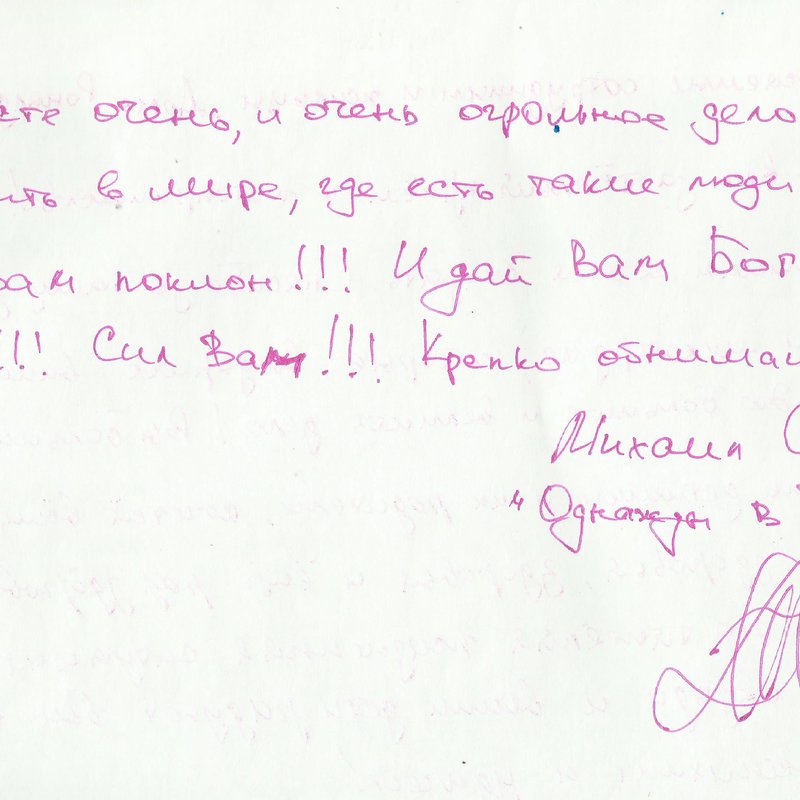 сте очень, и очень огромное дело
ить в мире, где есть такие люди
вам поклон!!! И дай Вам Бог
!!! Сил Вам!!! Крепко обнимаю
Михаил
"Однажды в